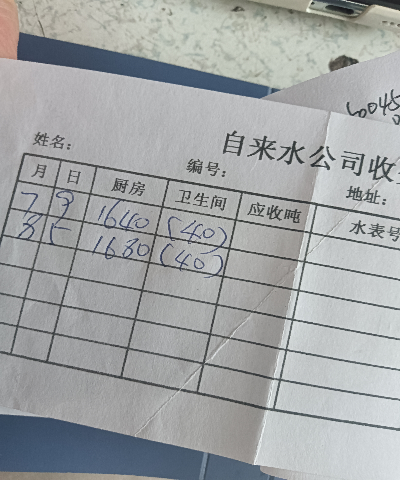 60045
自来水公司收
姓名: 编号: 地址:
月 日 厨房 卫生间 应收吨 水表号
7 9 1640 (40)
8 5 1680 (40)